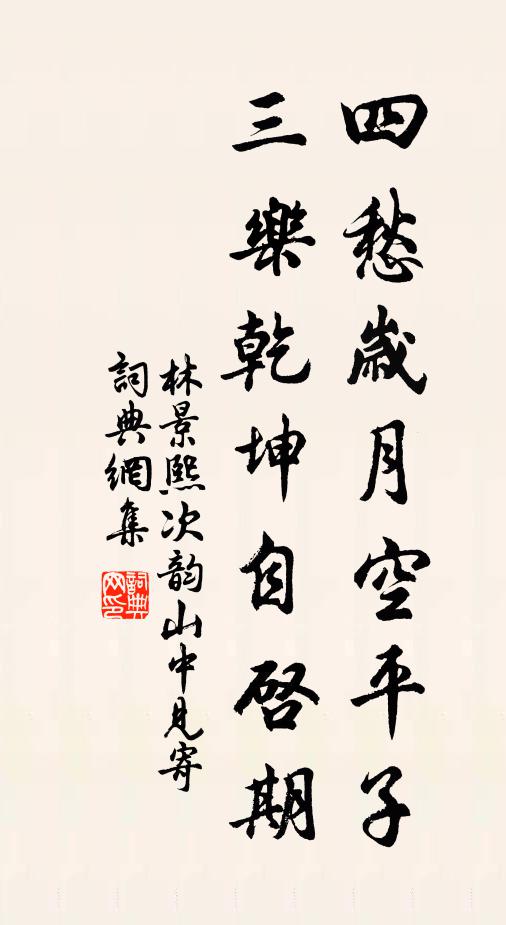 四愁歲月空平子
三樂乾坤自啓期
林景熙次韵山中見寄
詞典網集
詞典網印